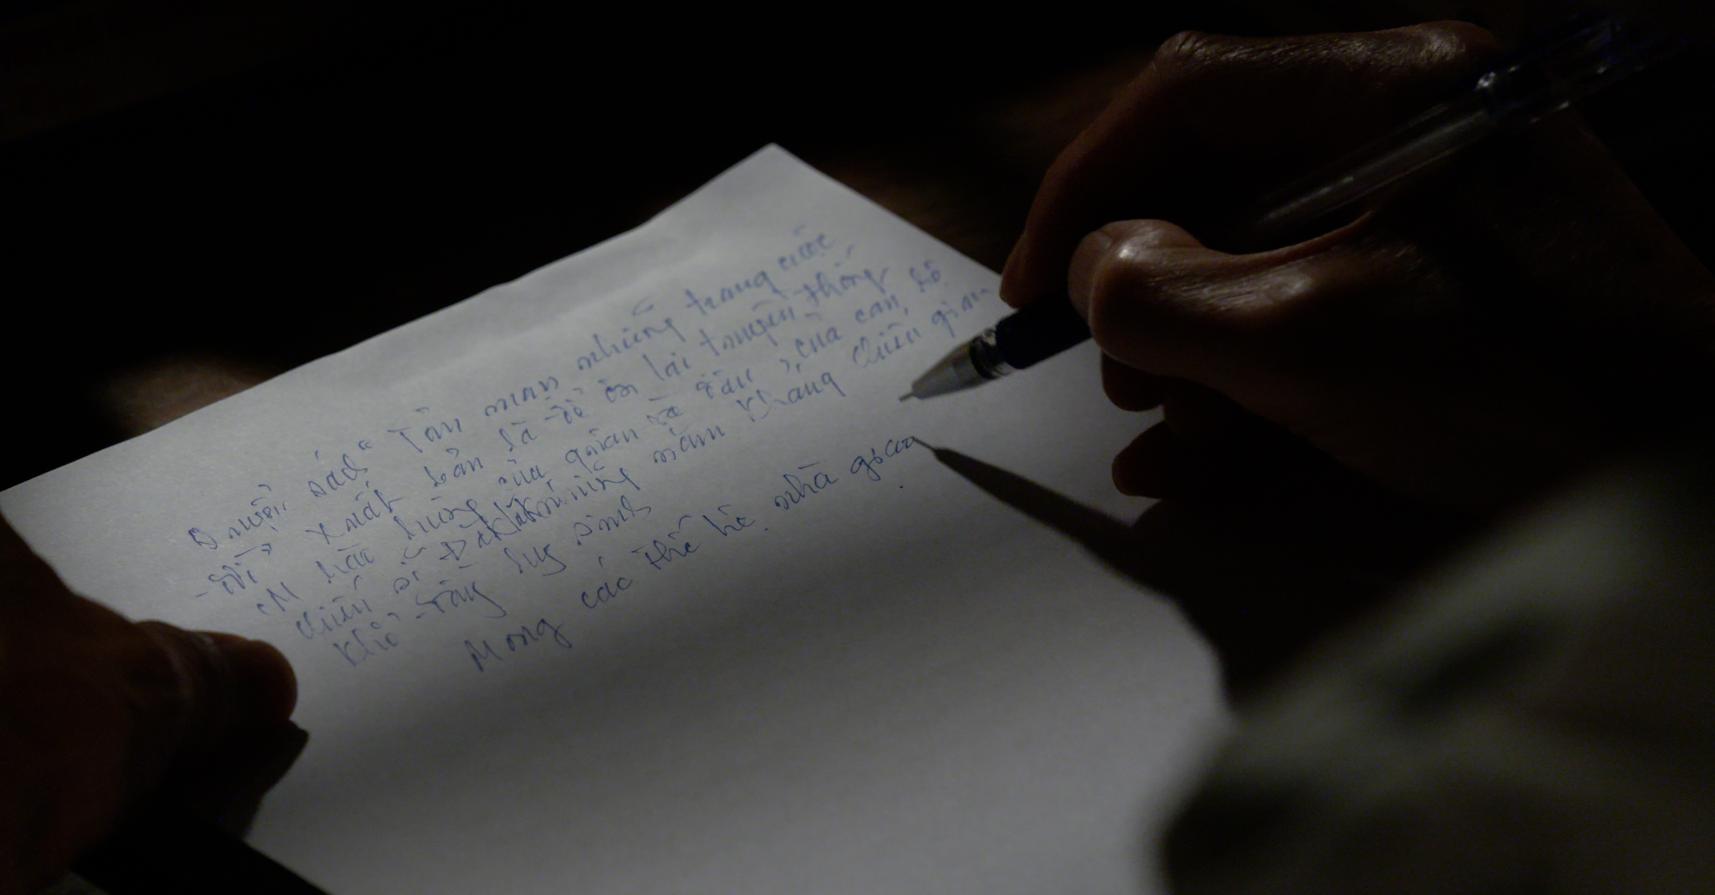 Cuốn sách "Tản mạn những trang cuộc
đời" xuất bản là để ôn lại truyền thống
hào hùng của quân và dân, của cán bộ
chiến sĩ Đắk Lắk những năm kháng chiến gian
khổ - từng hy sinh
Mong các thế hệ nhà giáo